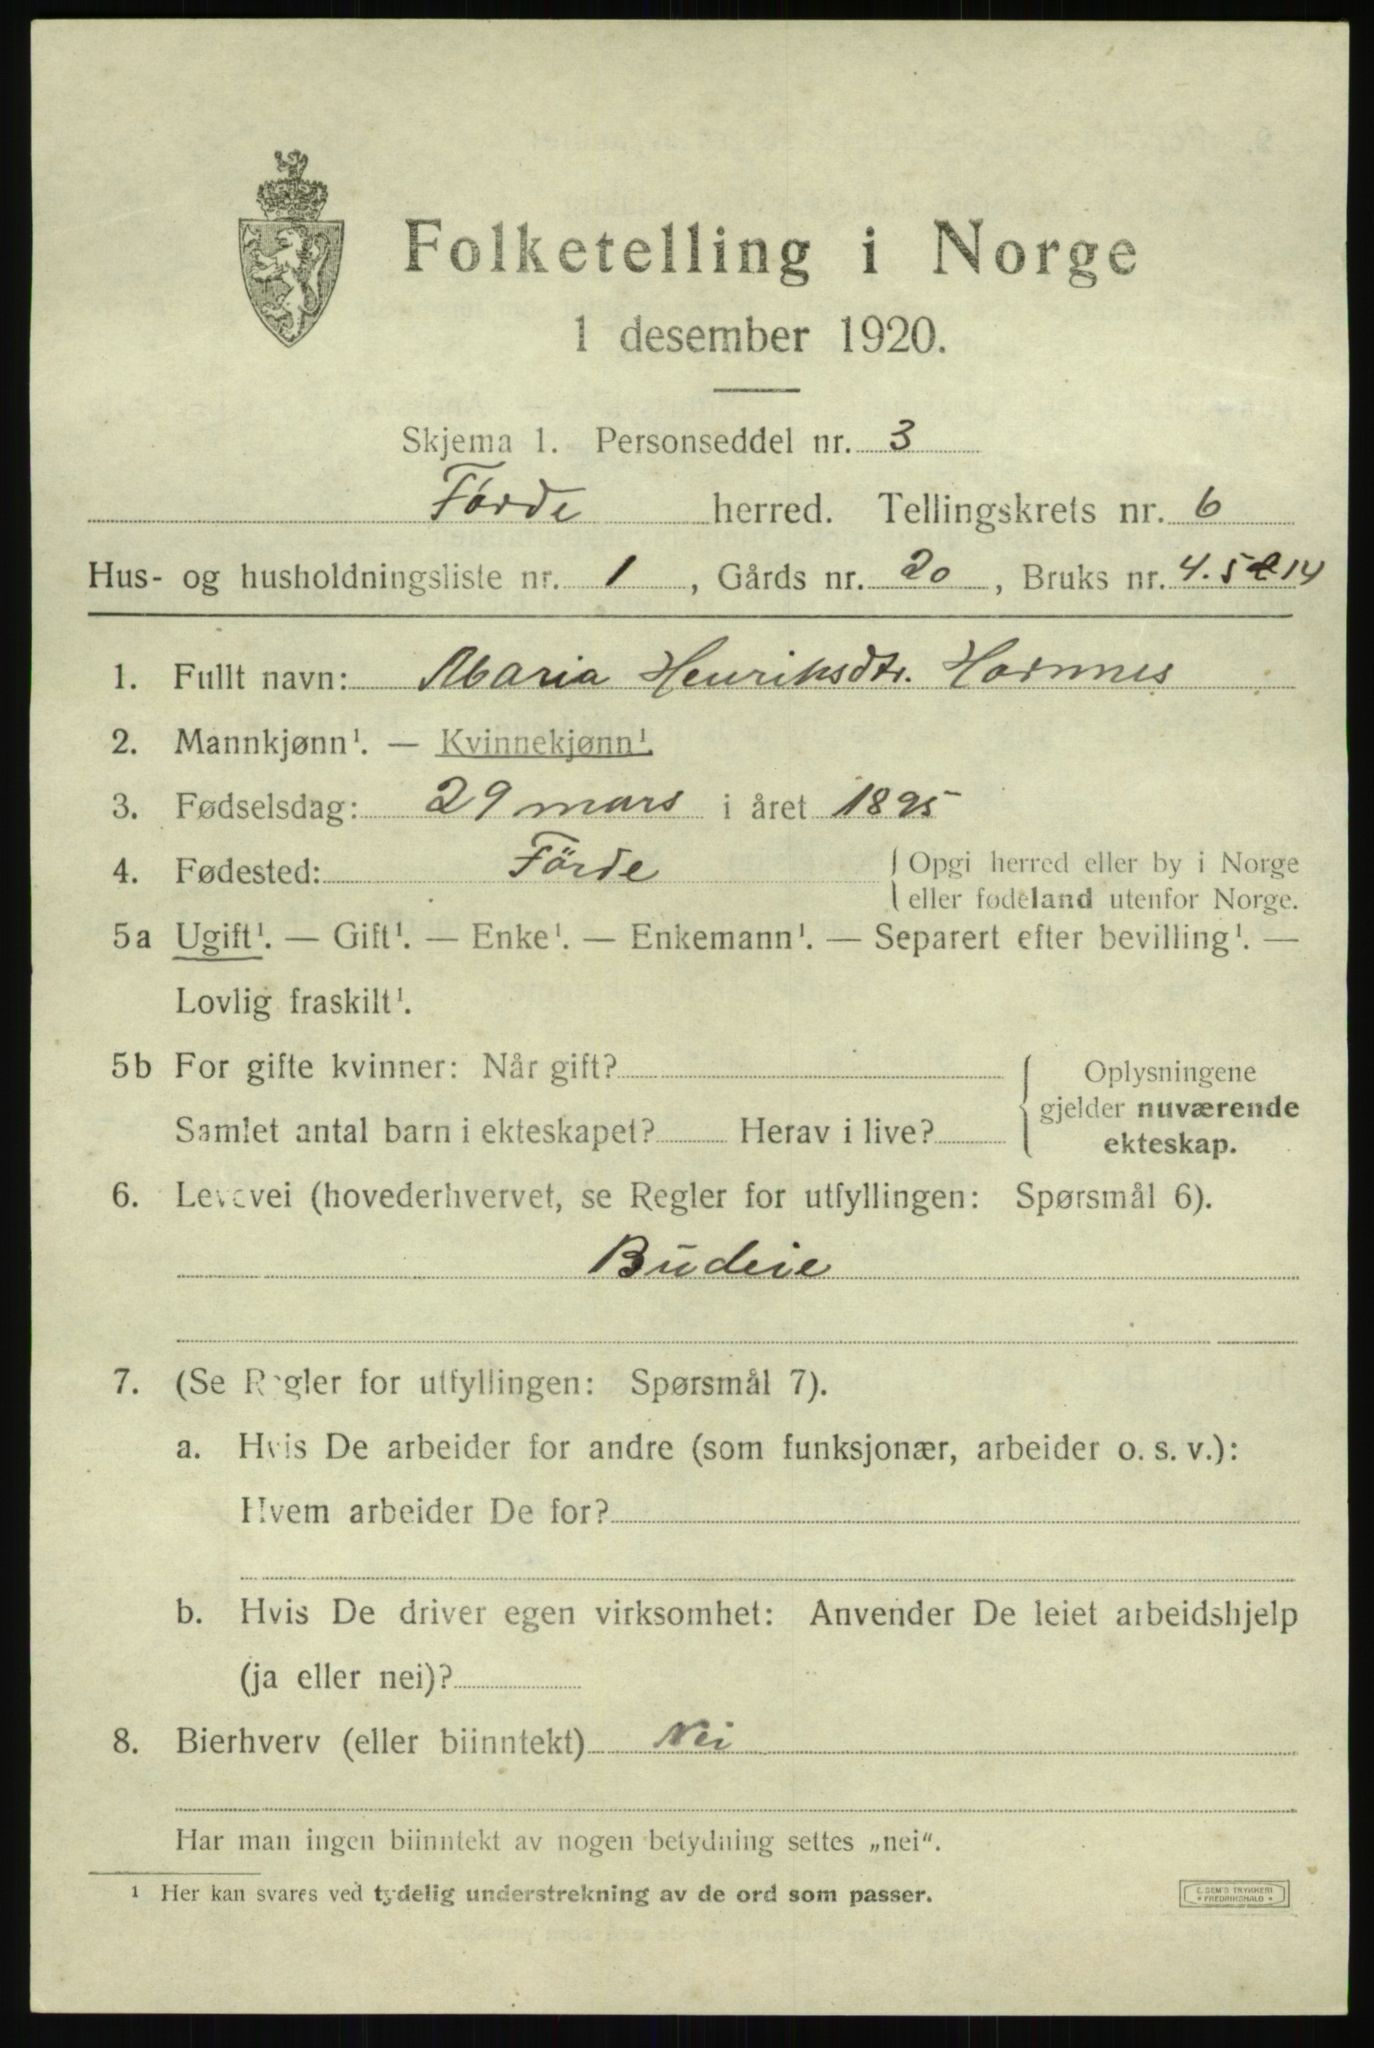 Folketelling i Norge
1 desember 1920.
Skjema 1. Personseddel nr. 3
Førde herred. Tellingskrets nr. 6
Hus- og husholdningsliste nr. 1, Gårds nr. 20, Bruks nr. 4. 5 14
1. Fullt navn: Maria Henriksdtr. Hornnes
2. Mannkjønn¹. — Kvinnekjønn¹.
3. Fødselsdag: 29 mars i året 1895
4. Fødested: Förde { Opgi herred eller by i Norge
eller fødeland utenfor Norge.
5a Ugift¹. — Gift¹. — Enke¹. — Enkemann¹. — Separert efter bevilling¹. —
Lovlig fraskilt¹.
5b For gifte kvinner: Når gift? { Oplysningene
gjelder nuværende
Samlet antal barn i ekteskapet? Herav i live?
ekteskap.
6. Levevei (hovederhvervet, se Regler for utfyllingen: Spørsmål 6).
Budeie
7. (Se Regler for utfyllingen: Spørsmål 7).
a. Hvis De arbeider for andre (som funksjonær, arbeider o. s. v.):
Hvem arbeider De for?
b. Hvis De driver egen virksomhet: Anvender De leiet arbeidshjelp
(ja eller nei)?
8. Bierhverv (eller biinntekt) Nei
Har man ingen biinntekt av nogen betydning settes „nei“.
¹ Her kan svares ved tydelig understrekning av de ord som passer.
E. SEM'S TRYKKERI
* FREDRIKSHALD *